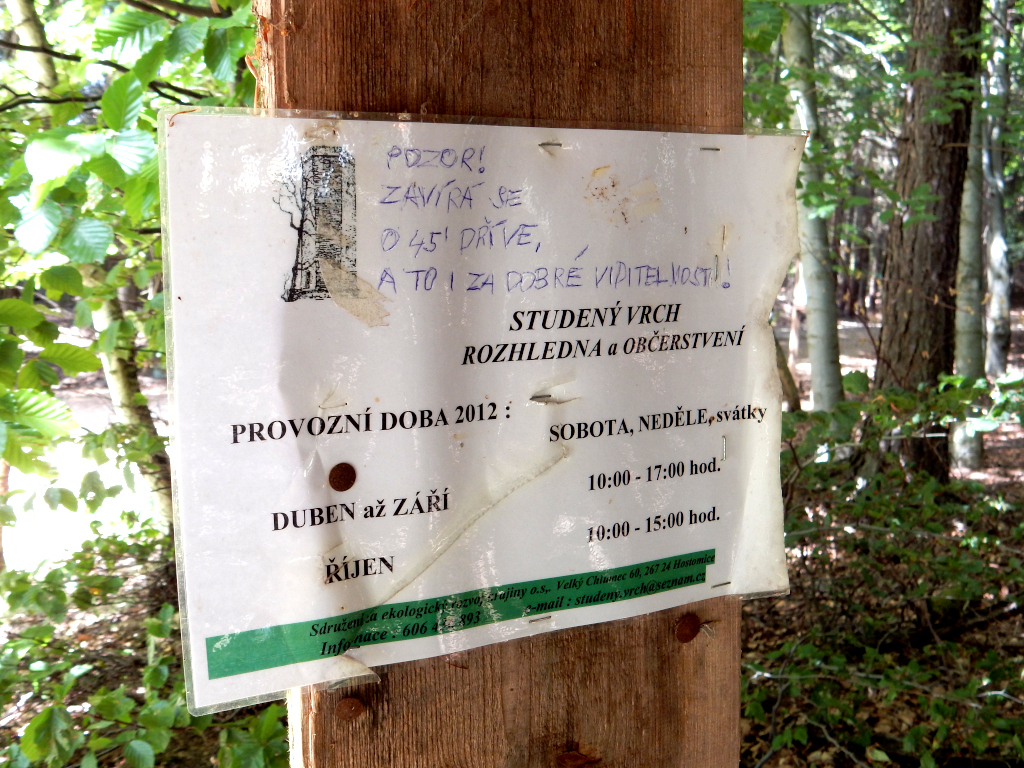 POZOR!
ZAVÍRÁ SE
O 45' DŘÍVE,
A TO I ZA DOBRÉ VIDITELNOSTI!
STUDENÝ VRCH
ROZHLEDNA a OBČERSTVENÍ
PROVOZNÍ DOBA 2012 :
SOBOTA, NEDĚLE, svátky
DUBEN až ZÁŘÍ
10:00 - 17:00 hod.
ŘÍJEN
10:00 - 15:00 hod.
Sdružení za ekologický rozvoj krajiny o.s,. Velký Chlumec 60, 267 24 Hostomice
606 893 e-mail : studeny.vrch@seznam.cz